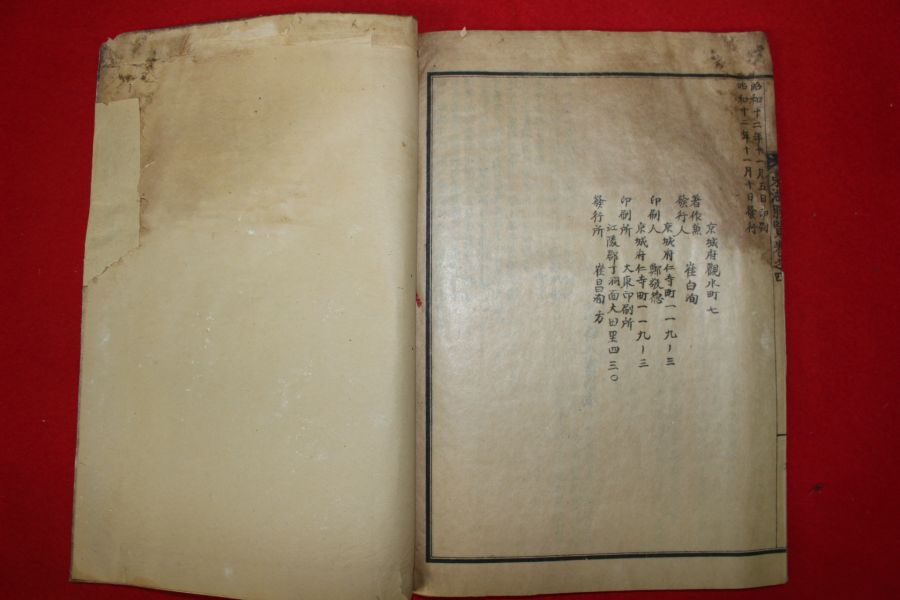 昭和十二年十一月五日印刷
昭和十二年十一月十日發行
京城府觀水町七
著作兼
發行人 崔白洵
京城府仁寺町一一九ノ三
印刷人 鄭敬悳
京城府仁寺町一一九ノ三
印刷所 大東印刷所
江陵郡丁洞面大田里四三〇
發行所 崔昌洵方